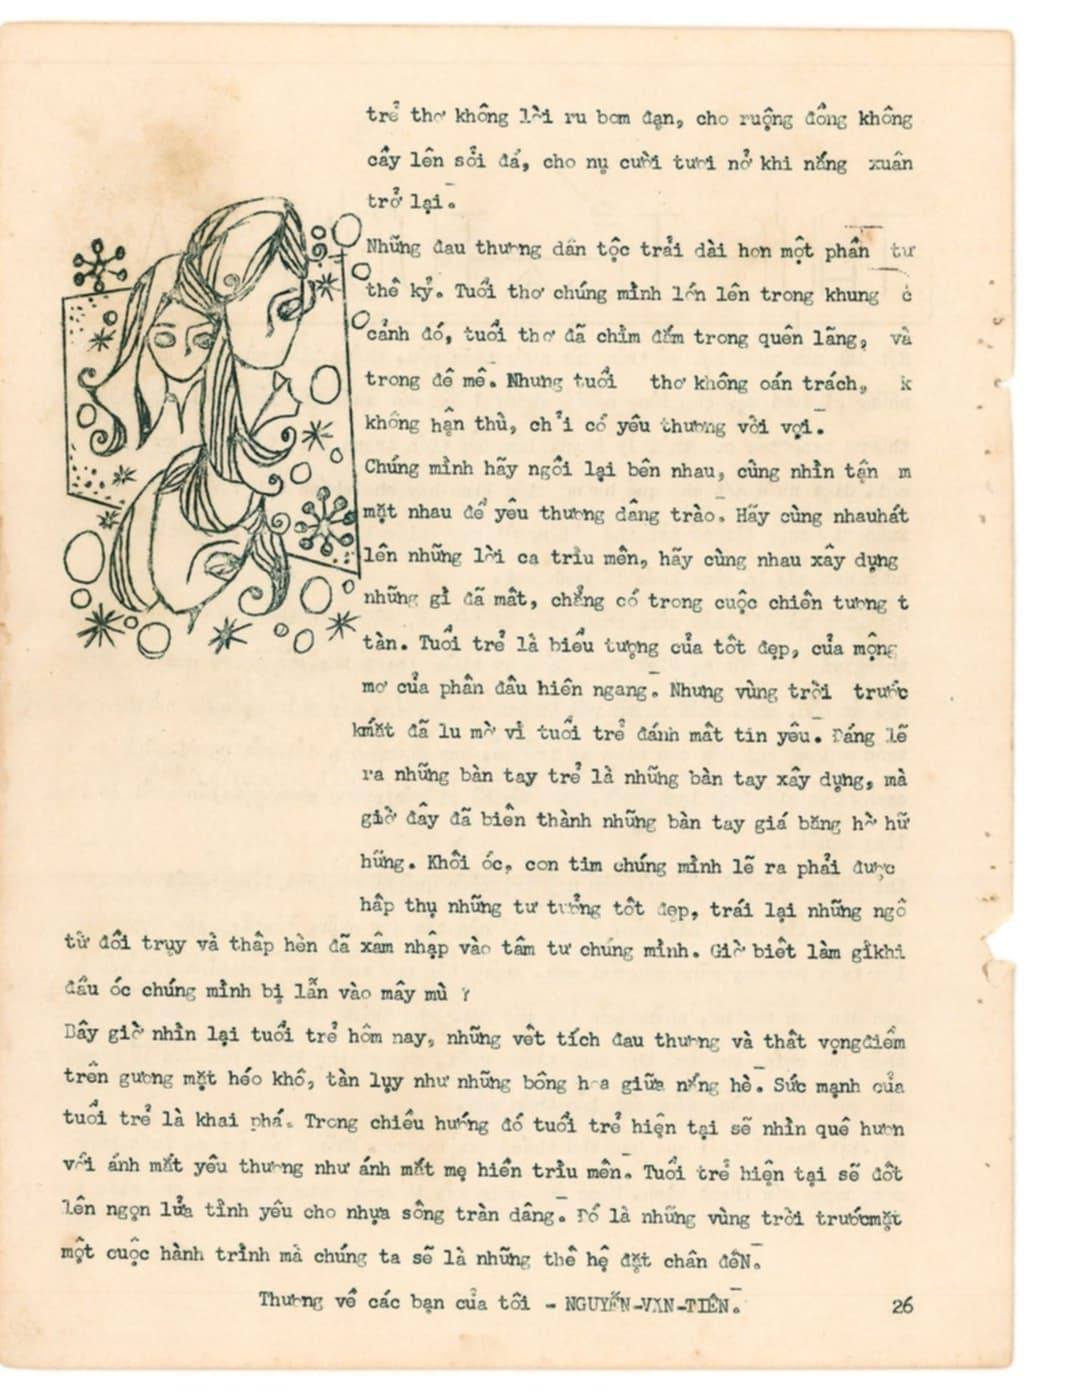 trẻ thơ không lời ru bom đạn, cho ruộng đồng không
cầy lên sỏi đá, cho nụ cười tươi nở khi nắng xuân
trở lại.
Những đau thương dân tộc trải dài hơn một phần tư
thế kỷ. Tuổi thơ chúng mình lớn lên trong khung c
cảnh đó, tuổi thơ đã chìm đắm trong quên lãng, và
trong đê mê. Nhưng tuổi thơ không oán trách, k
không hận thù, chỉ có yêu thương vời vợi.
Chúng mình hãy ngồi lại bên nhau, cùng nhìn tận m
mặt nhau để yêu thương dâng trào. Hãy cùng nhauhát
lên những lời ca trìu mến, hãy cùng nhau xây dựng
những gì đã mất, chẳng có trong cuộc chiến tương t
tàn. Tuổi trẻ là biểu tượng của tốt đẹp, của mộng
mơ của phấn đấu hiên ngang. Nhưng vùng trời trước
kmắt đã lu mờ vì tuổi trẻ đánh mất tin yêu. Đáng lẽ
ra những bàn tay trẻ là những bàn tay xây dựng, mà
giờ đây đã biến thành những bàn tay giá băng hờ hữ
hững. Khối óc, con tim chúng mình lẽ ra phải được
hấp thụ những tư tưởng tốt đẹp, trái lại những ngô
từ đồi trụy và thấp hèn đã xâm nhập vào tâm tư chúng mình. Giờ biết làm gìkhi
đầu óc chúng mình bị lẫn vào mây mù ?
Bây giờ nhìn lại tuổi trẻ hôm nay, những vết tích đau thương và thất vọngđiểm
trên gương mặt héo khô, tàn lụy như những bông hoa giữa nắng hè. Sức mạnh của
tuổi trẻ là khai phá. Trong chiều hướng đó tuổi trẻ hiện tại sẽ nhìn quê hươn
với ánh mắt yêu thương như ánh mắt mẹ hiền trìu mến. Tuổi trẻ hiện tại sẽ đốt
lên ngọn lửa tình yêu cho nhựa sống tràn dâng. Đó là những vùng trời trướcmặt
một cuộc hành trình mà chúng ta sẽ là những thế hệ đặt chân đếN.
Thương về các bạn của tôi - NGUYỄN-VĂN-TIÊN.
26